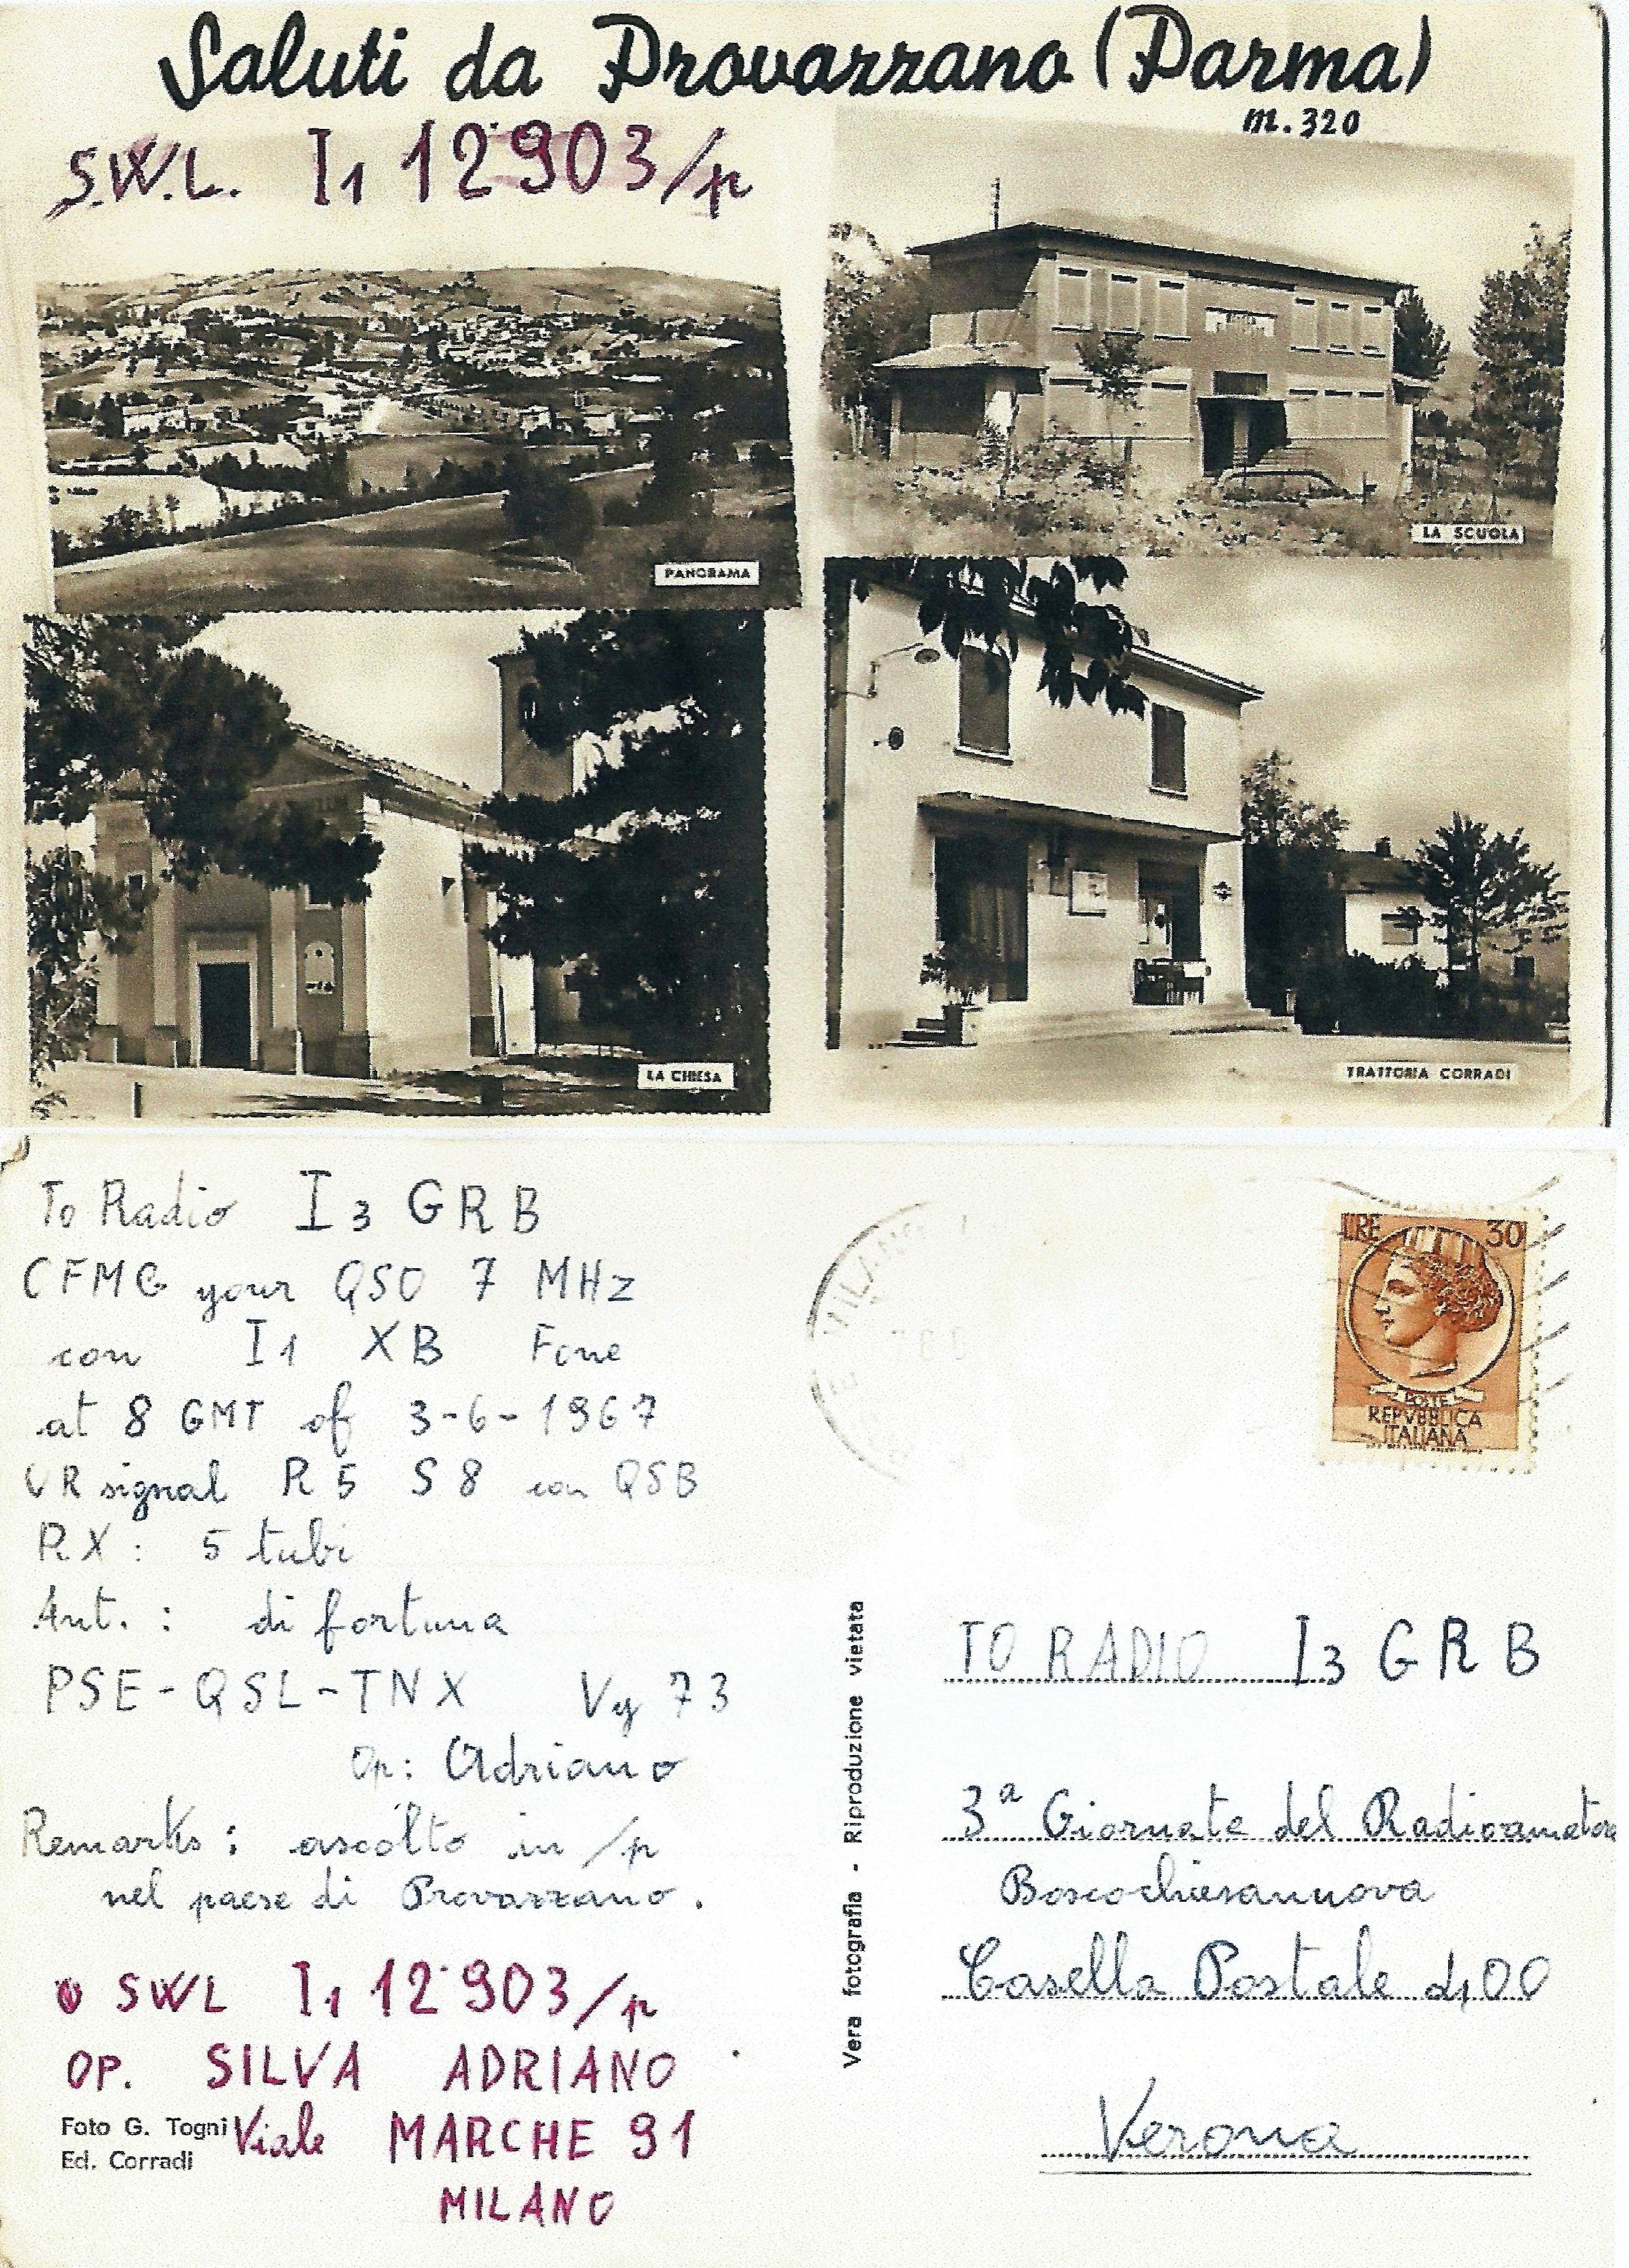 Saluti da Provazzano (Parma)
m. 320
S.W.L. I1 12903/p
PANORAMA
LA SCUOLA
LA CHIESA
TRATTORIA CORRADI
To Radio I3 GRB
CFMG your QSO 7 MHz
con I1 XB Fone
at 8 GMT of 3-6-1967
UR signal R5 S8 con QSB
RX: 5 tubi
Ant.: di fortuna
PSE-QSL-TNX Vy 73
Op: Adriano
Remarks: ascolto in /p
nel paese di Provazzano.
SWL I1 12903/p
OP. SILVA ADRIANO
Viale MARCHE 91
MILANO
Foto G. Togni
Ed. Corradi
Vera fotografia - Riproduzione vietata
MILANO
LIRE 30
POSTE
REPVBBLICA
ITALIANA
TO RADIO I3 GRB
3a Giornata del Radioamatore
Boscochiesanuova
Casella Postale 400
Verona